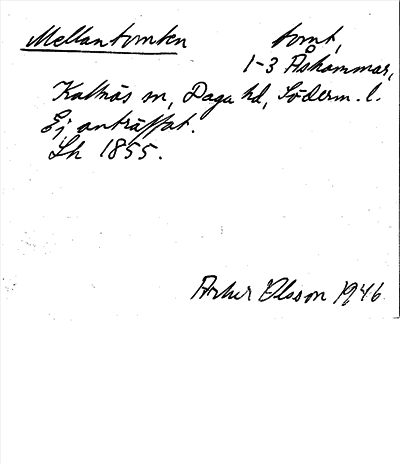 Mellantomten tomt,
1-3 Åshammar,
Kattnäs sn, Daga hd, Söderm. l.
Ej anträffat.
Lh 1855.
Arthur Olsson 1946